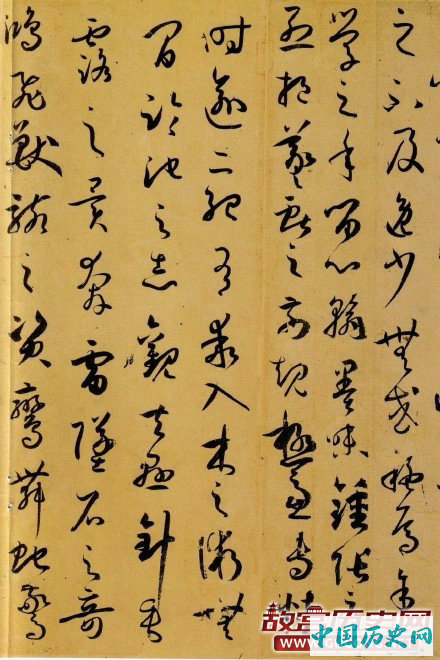 之不及逸少無或疑焉余
學之年留心翰墨味鍾張之
烈挹羲獻之前規極慮專精
時逾二紀有乖入木之術無
間臨池之志觀夫懸針垂
露之異奔雷墜石之奇
鴻飛獸駭之資鸞舞蛇驚
中国历史网